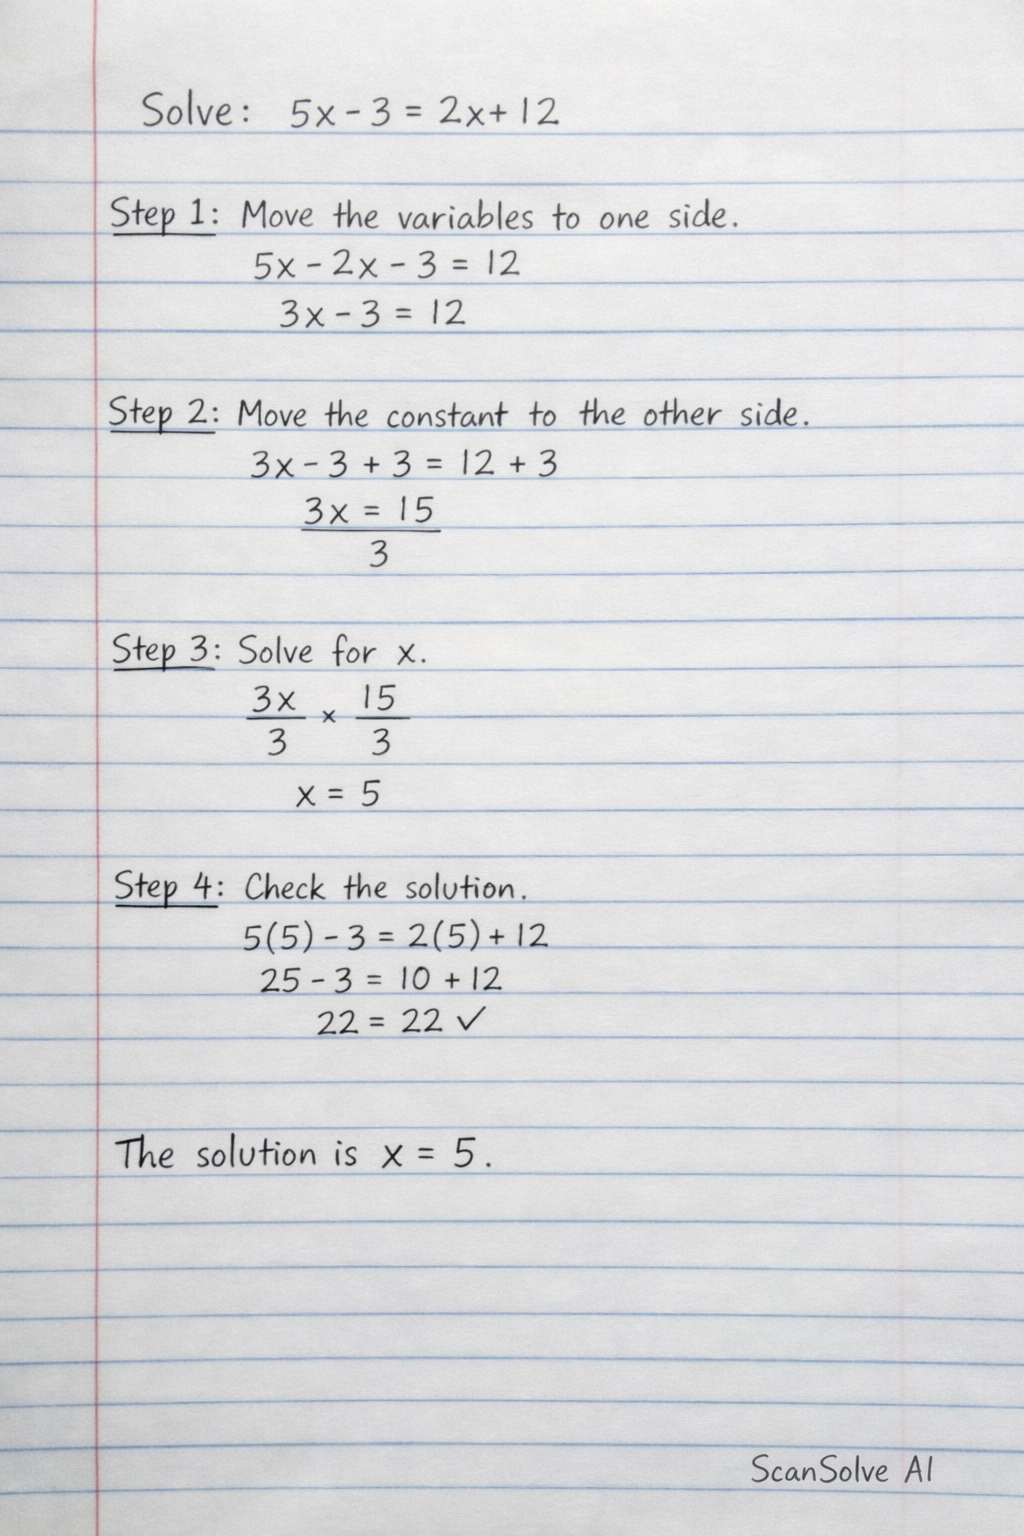 Solve: 5x - 3 = 2x + 12
Step 1: Move the variables to one side.
5x - 2x - 3 = 12
3x - 3 = 12
Step 2: Move the constant to the other side.
3x - 3 + 3 = 12 + 3
3x = 15
3
Step 3: Solve for x.
3x × 15
3 3
x = 5
Step 4: Check the solution.
5(5) - 3 = 2(5) + 12
25 - 3 = 10 + 12
22 = 22 ✓
The solution is x = 5.
ScanSolve AI